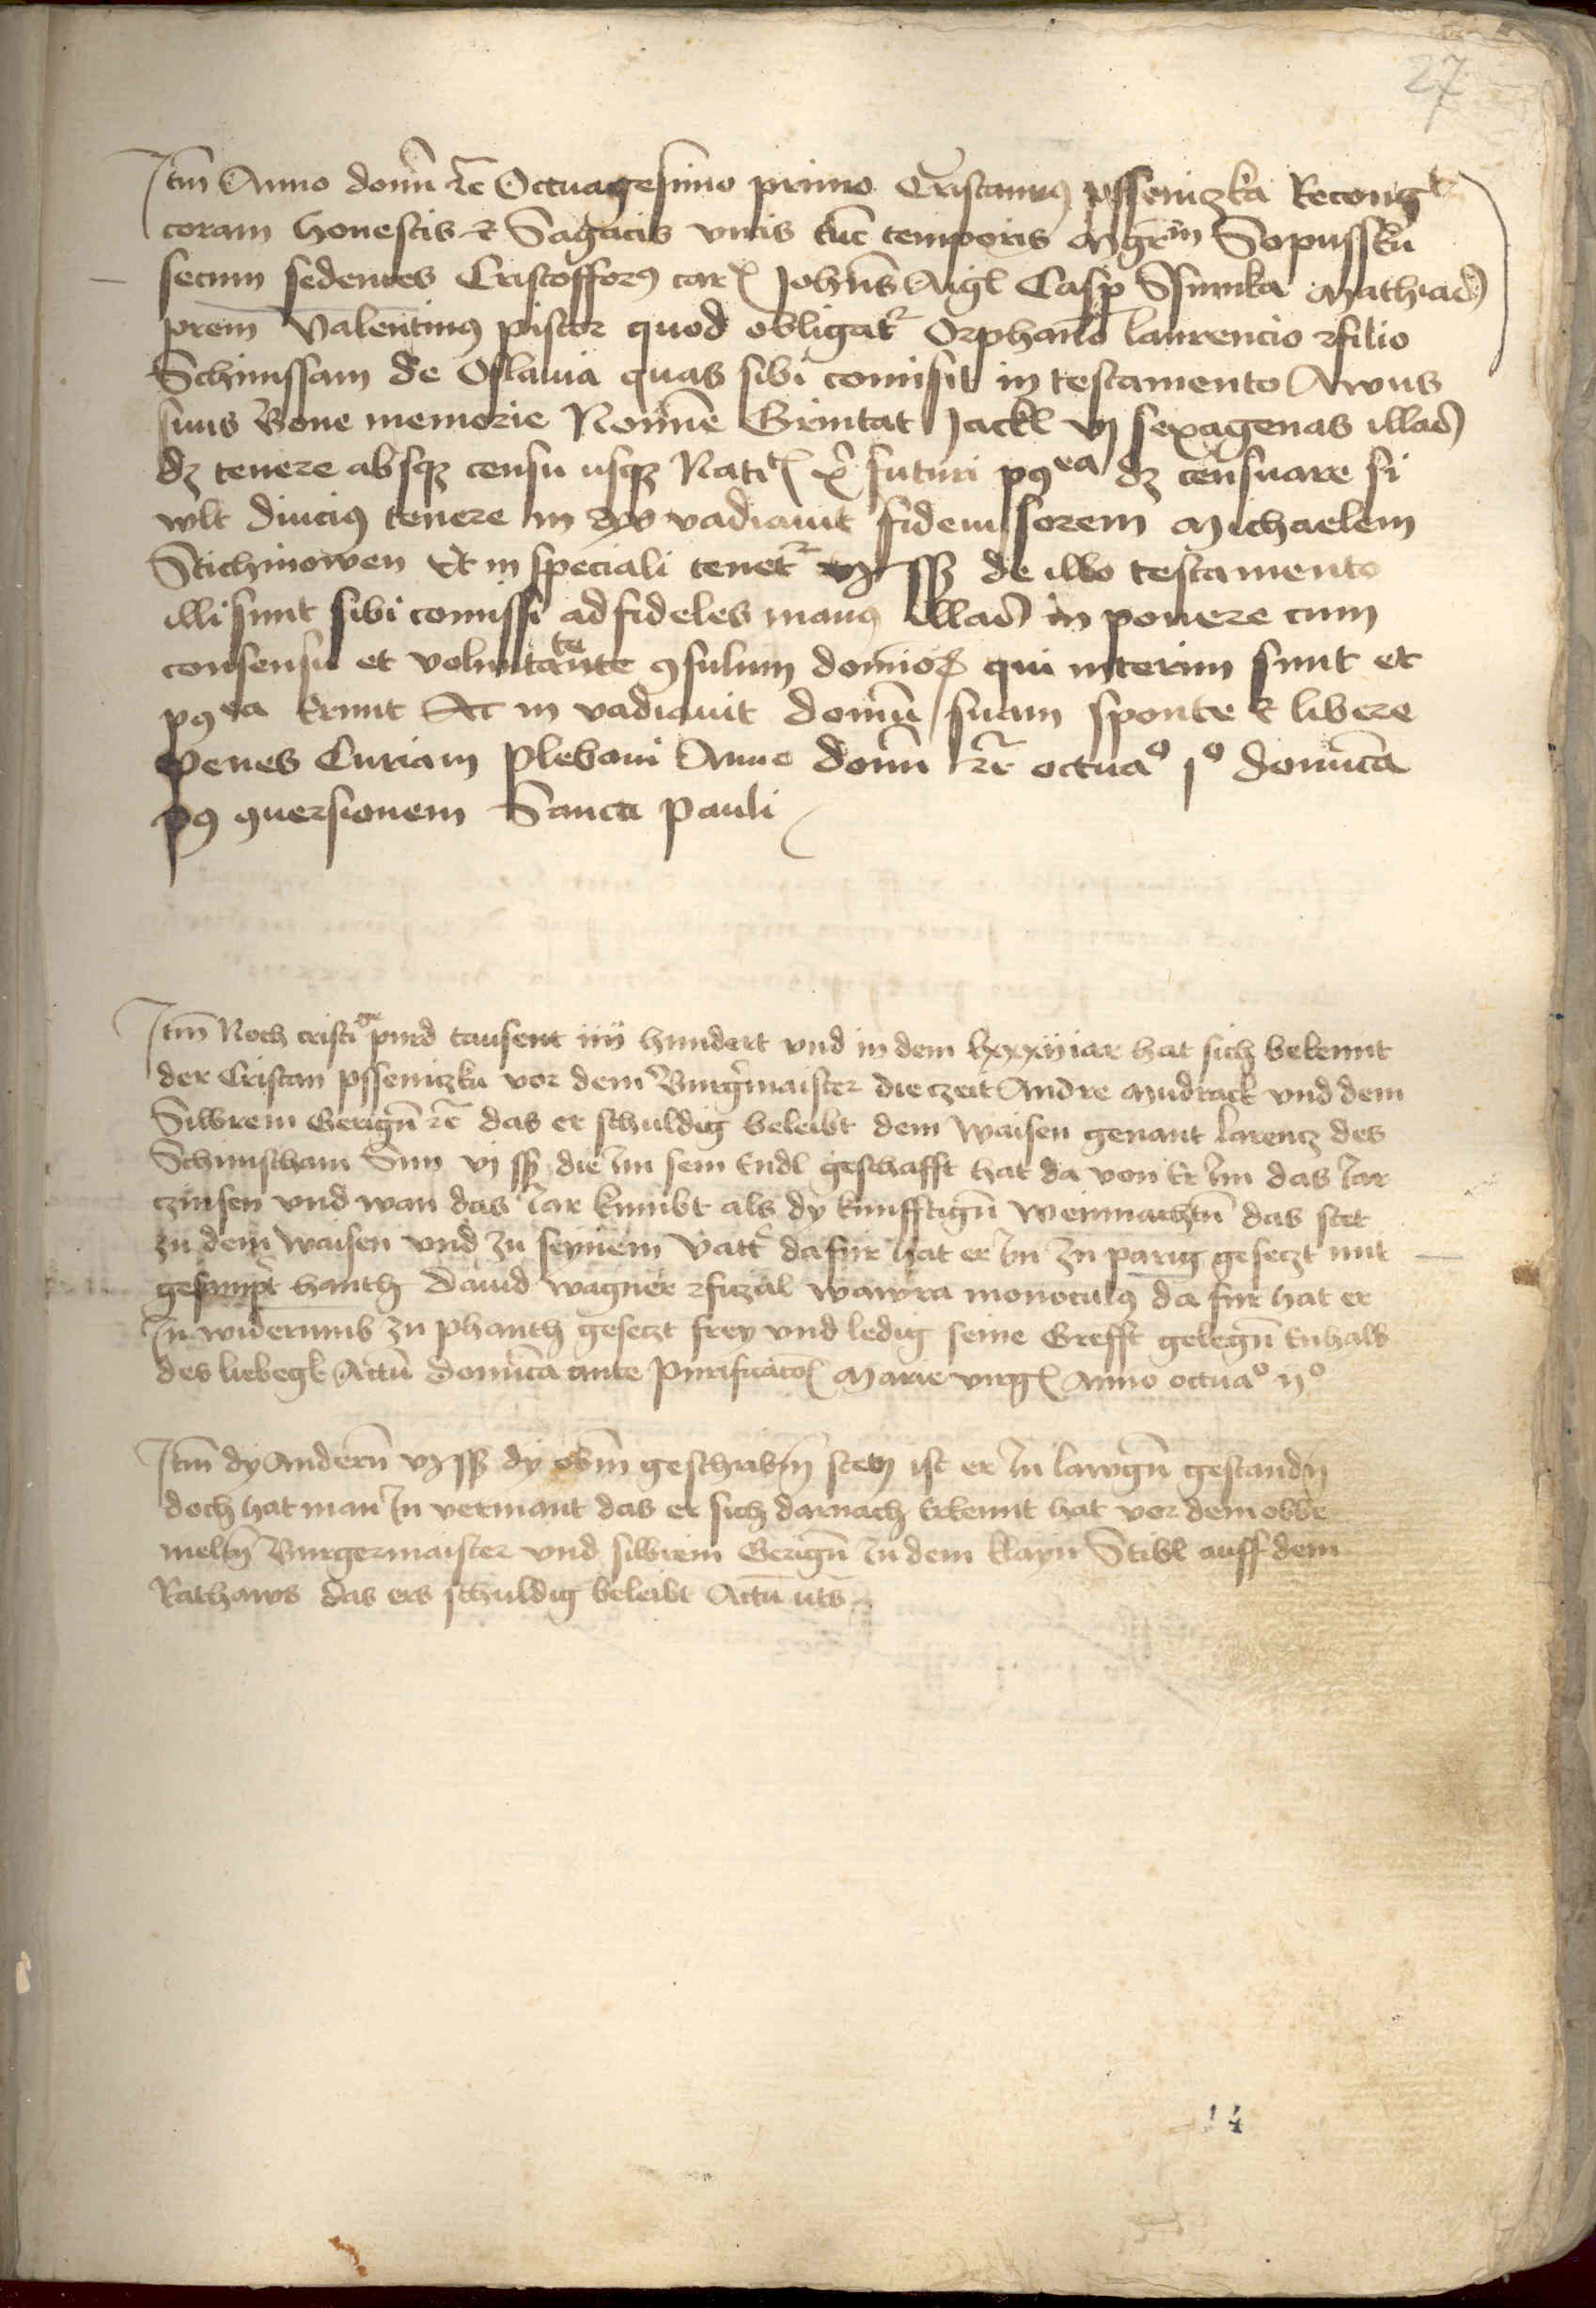 27
Itm Anno domi etc Octuagesimo primo Cristannus pssenizka Recong
coram honestis et Sagacis viris tunc temporis Mgrm Sopussku
secum sedentes Cristofforus Johnes Aigl Casp Ssimka Mathiad
prem Valentinus pistor quod obligatr Orphano laurencio filio
Schimssam de Oslauia quas sibi comisit in testamento Awus
suus Bone memorie Nomine Grintat Jackl vj sexagenas illas
dz tenere absqz censu usqz Natl futuri postea dz censuare si
wlt diucius tenere in vadiauit fideiussorem Michaelem
Stichinowen Et in speciali tenetr vj ss de illo testamento
illi sunt sibi comissi ad fideles manus illas in ponere cum
consensu et voluntate consulum dominor qui interim sunt et
postea erunt Ac in vadiauit domum suam sponte et libere
penes Curiam plebani Anno domi etc octuao jo dominica
post conuersionem Sancti pauli
Itm Noch cristi gepurd tausent iiij hundert vnd in dem lxxxij iar hat sich bekennt
der Cristan pssenizku vor dem Burgermaister die czeit Andre Mudrack vnd dem
Siwrem Gerign etc das er schuldig beleibt dem Waisen genant larencz des
Schimscham Sun vj ss die Im sein Endl geschafft hat da von Er Im das Iar
czinsen vnd wan das Iar kumbt als dy kunfftign Weinnachtn das stet
zu dem Waisen vnd zu seynem Vattr dafur hat er Im zu parig geseczt mit
gesampt hanth Dauid Wagner wawra monoculus da fur hat er
In widerumb zu phanth geseczt frey vnd ledig seine Grefft gelegn Enhalb
des liebegk Actum dominica ante Purificacol Marie virgl Anno octuao ijo
Itm dy Andern vj ss dy obm geschribn sten ist er In lawgn gestandn
doch hat man In vermant das er sich darnach Erkennt hat vor dem obbe
meltn Burgermaister vnd siwrem Gerign In dem klayn Stibl auff dem
Rathaws das ers schuldig beleibt Actum uts
14